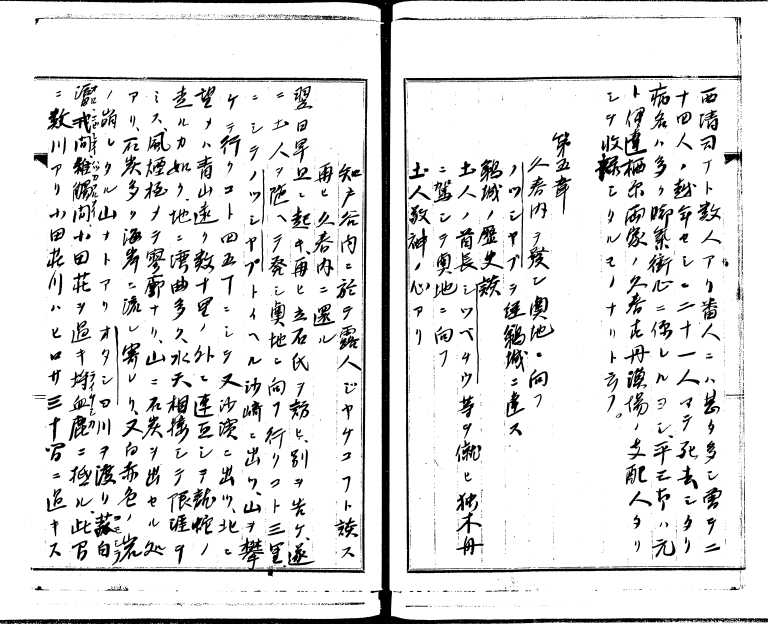 西清司ナト数人アリ番人ニハ甚タ多シ曽テ二
十四人ノ越年セシニ二十一人マテ死去シタリ
病名ハ多ク脚気衝心ニ係レルヨシ、平三郎ハ元
ト伊達栖原両家ノ久春古丹漁場ノ支配人タリ
シヲ収録シタルモノナリト云フ。
第五章
久春内ヲ発シ奥地ニ向フ
ノツシヤプヲ経鵜城ニ達ス
鵜城ノ歴史談
土人ノ首長シツペケウ等ヲ傭ヒ独木舟
ニ駕シテ奥地ニ向フ
土人敬神ノ心アリ
知戸谷内ニ於テ露人ジヤケコフト談ス
再ヒ久春内ニ還ル
翌日早旦ニ起キ、再ヒ立石氏ヲ訪ヒ、別ヲ告ケ、遂
ニ土人ヲ随ヘテ発シ奥地ニ向フ行クコト三里
ニシテノツシヤプトイヘル沙崎ニ出ツ、山ヲ攀
ケテ行クコト四五丁ニシテ又沙濱ニ出ツ、北ニ
望メハ青山遠ク数十里ノ外ニ連亘シテ龍蛇ノ
走ルカ如ク、地ニ湾曲多ク、水天相接シテ限涯ヲ
ミス、風煙極メテ寥廓ナリ、山ニ石炭ヲ出セル処
アリ、石炭多ク海岸ニ流レ寄レリ、又白赤色ノ岩
ノ崩レタル山ナトアリオタシロ川ヲ渡リ
小田荘ヲ過キ
ニ極ル、此間
ニ数川アリ小田荘川ハヒロサ三十間ニ過キス